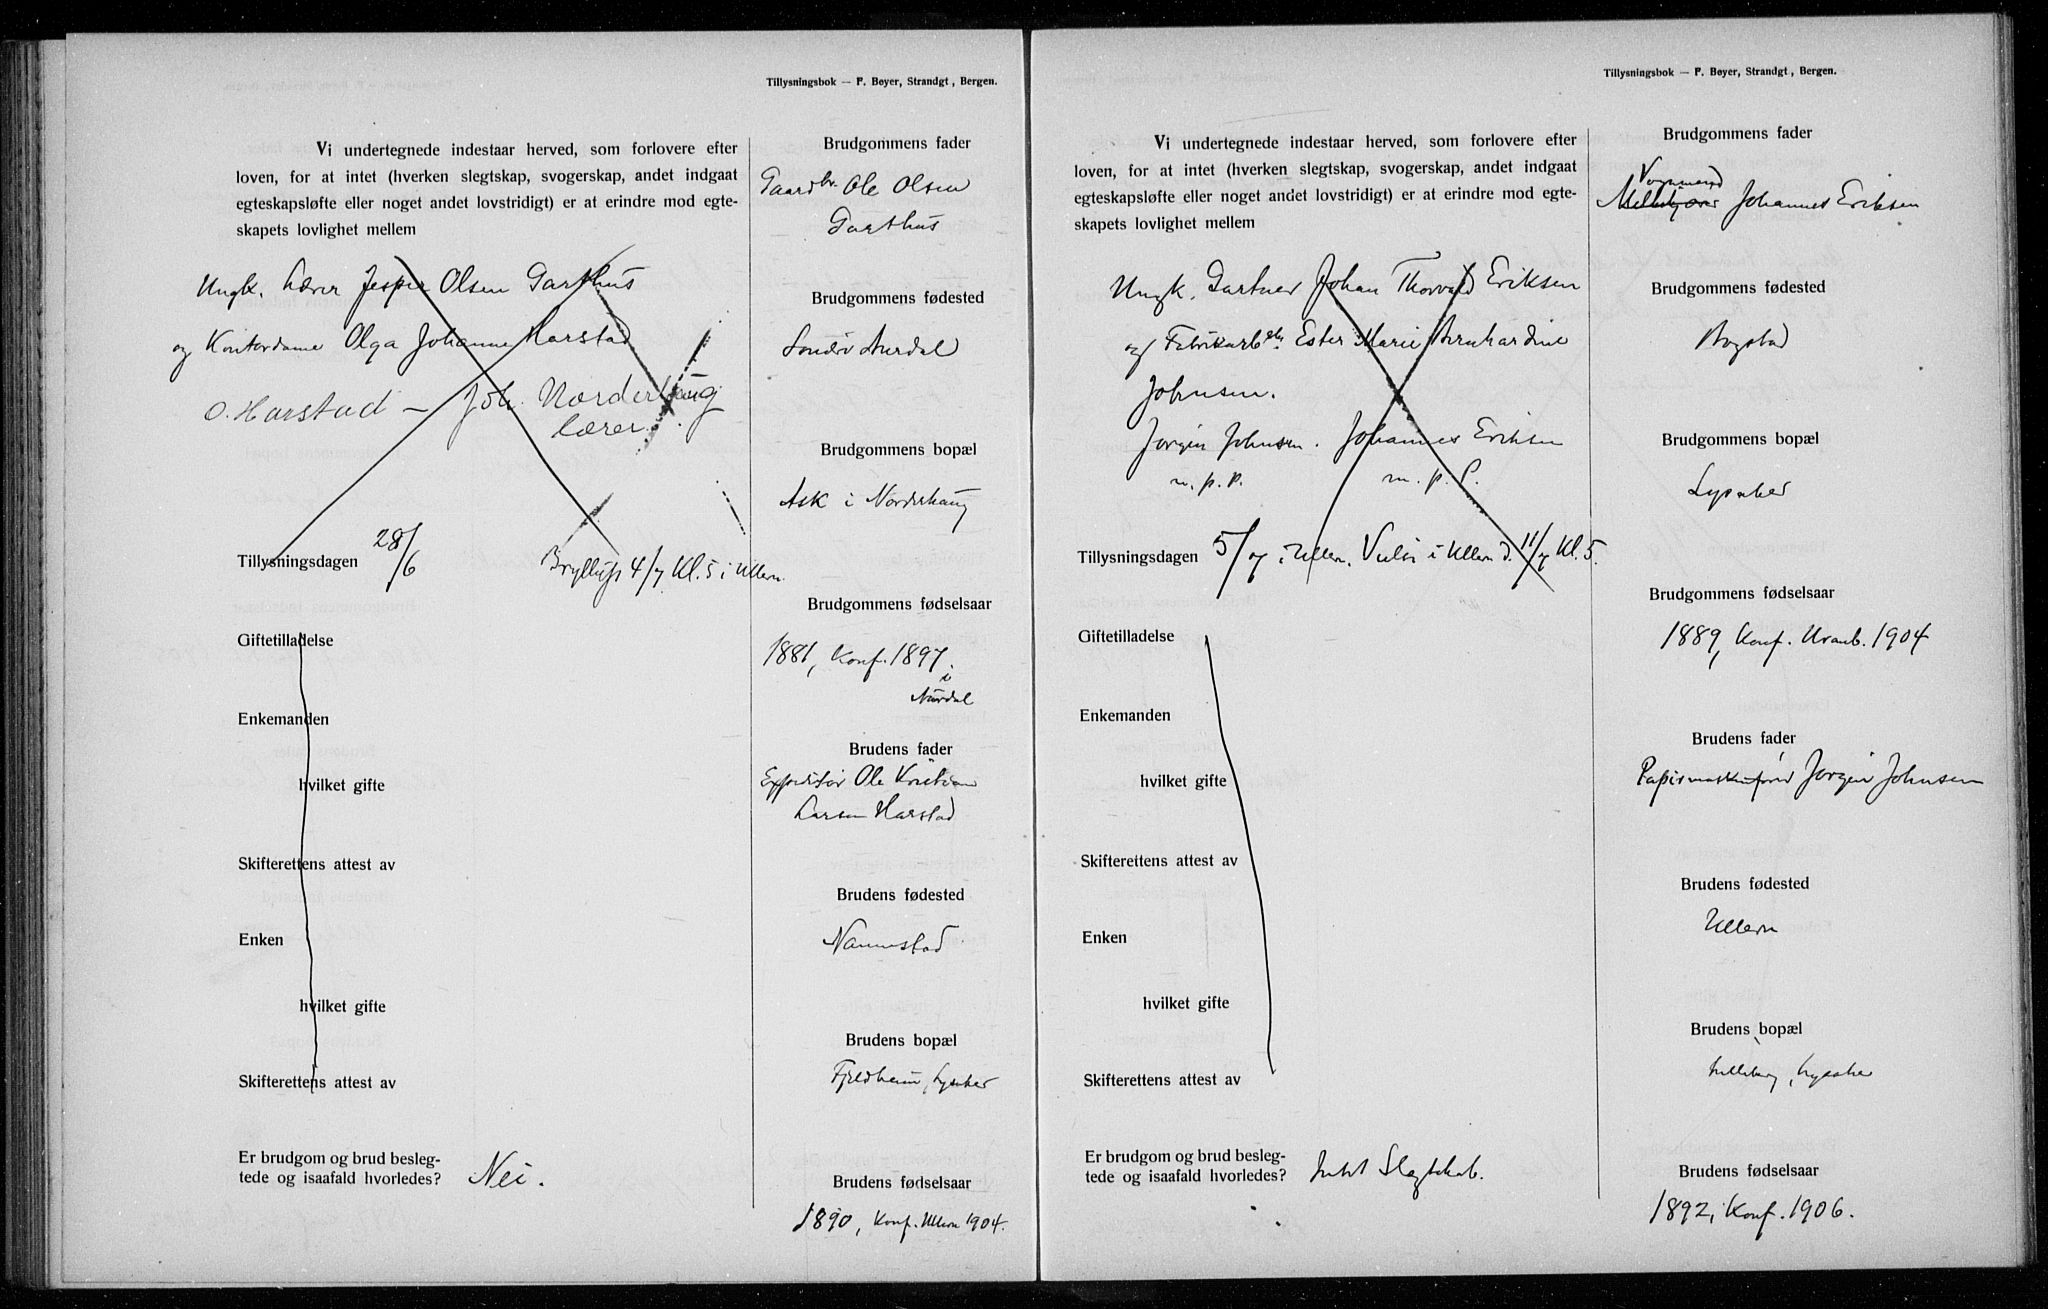 Tillysningsbok — F. Beyer, Strandgt, Bergen.
Vi undertegnede indestaar herved, som forlovere efter
loven, for at intet (hverken slegtskap, svogerskap, andet indgaat
egteskapsløfte eller noget andet lovstridigt) er at erindre mod egte-
skapets lovlighet mellem
Ungk. Lærer Jesper Olsen Garthus
og Kontordame Olga Johanne Harstad
O. Harstad — Joh. Norderhaug
lærer.
Tillysningsdagen 28/6 Bryllup 4/7 Kl. 5 i Ullern.
Giftetilladelse
Enkemanden
hvilket gifte
Skifterettens attest av
Enken
hvilket gifte
Skifterettens attest av
Er brudgom og brud besleg-
tede og isaafald hvorledes? Nei.
Brudgommens fader
Gaardbr. Ole Olsen
Garthus
Brudgommens fødested
Søndre Aurdal
Brudgommens bopæl
Ask i Norderhaug
Brudgommens fødselsaar
1881, Konf. 1897
i
Aurdal
Brudens fader
Expeditør Ole Kristian
Larsen Harstad
Brudens fødested
Nannestad
Brudens bopæl
Fjeldheim, Lysaker
Brudens fødselsaar
1890, Konf. Ullern 1904.
Tillysningsbok — F. Beyer, Strandgt, Bergen.
Vi undertegnede indestaar herved, som forlovere efter
loven, for at intet (hverken slegtskap, svogerskap, andet indgaat
egteskapsløfte eller noget andet lovstridigt) er at erindre mod egte-
skapets lovlighet mellem
Ungk. Gartner Johan Thorvald Eriksen
og Fabrikarb. Ester Marie Arnhardine
Johnsen.
Jørgen Johnsen. Johannes Eriksen
m. p. P. m. p. P.
Tillysningsdagen 5/7 i Ullern. Vielse i Ullern d. 11/7 Kl. 5.
Giftetilladelse
Enkemanden
hvilket gifte
Skifterettens attest av
Enken
hvilket gifte
Skifterettens attest av
Er brudgom og brud besleg-
tede og isaafald hvorledes? Intet Slegtskab.
Brudgommens fader
Vognmand
Melkekjører Johannes Eriksen
Brudgommens fødested
Bogstad
Brudgommens bopæl
Lysaker
Brudgommens fødselsaar
1889, Konf. Uranb. 1904
Brudens fader
Papirmaskinfører Jørgen Johnsen
Brudens fødested
Ullern
Brudens bopæl
Lilleborg, Lysaker
Brudens fødselsaar
1892, Konf. 1906.